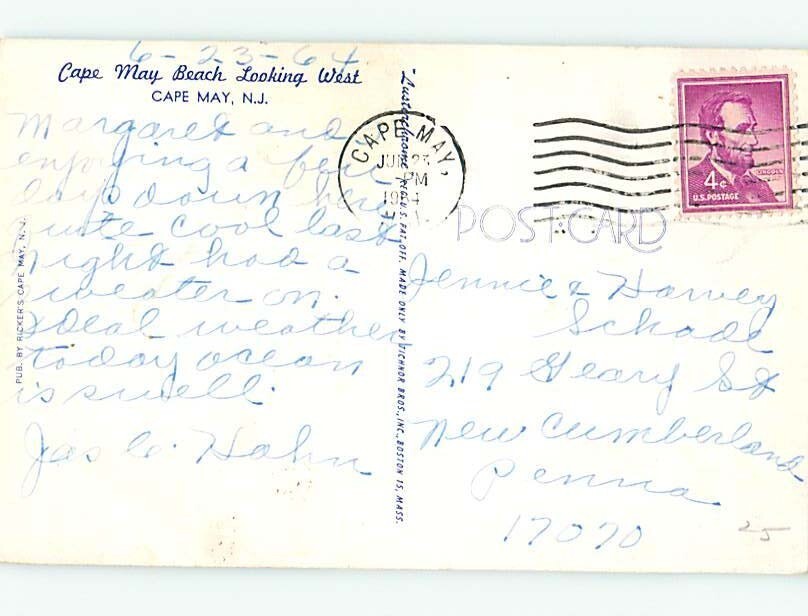 6-23-64
Cape May Beach Looking West
CAPE MAY, N.J.
Margaret and I
enjoying a few
days down here
quite cool last
night had a
sweater on.
Ideal weather
today ocean
is swell.
Jas C. Hahn
PUB. BY RICKER'S CAPE MAY, N.J.
"Lusterchrome" REG. U.S. PAT. OFF. MADE ONLY BY TICHNOR BROS., INC., BOSTON 15, MASS.
CAPE MAY,
PM
POST CARD
LINCOLN
4¢
U.S. POSTAGE
Jennie & Harvey
Schadl
219 Geary St
New Cumberland
Penna
17070
25